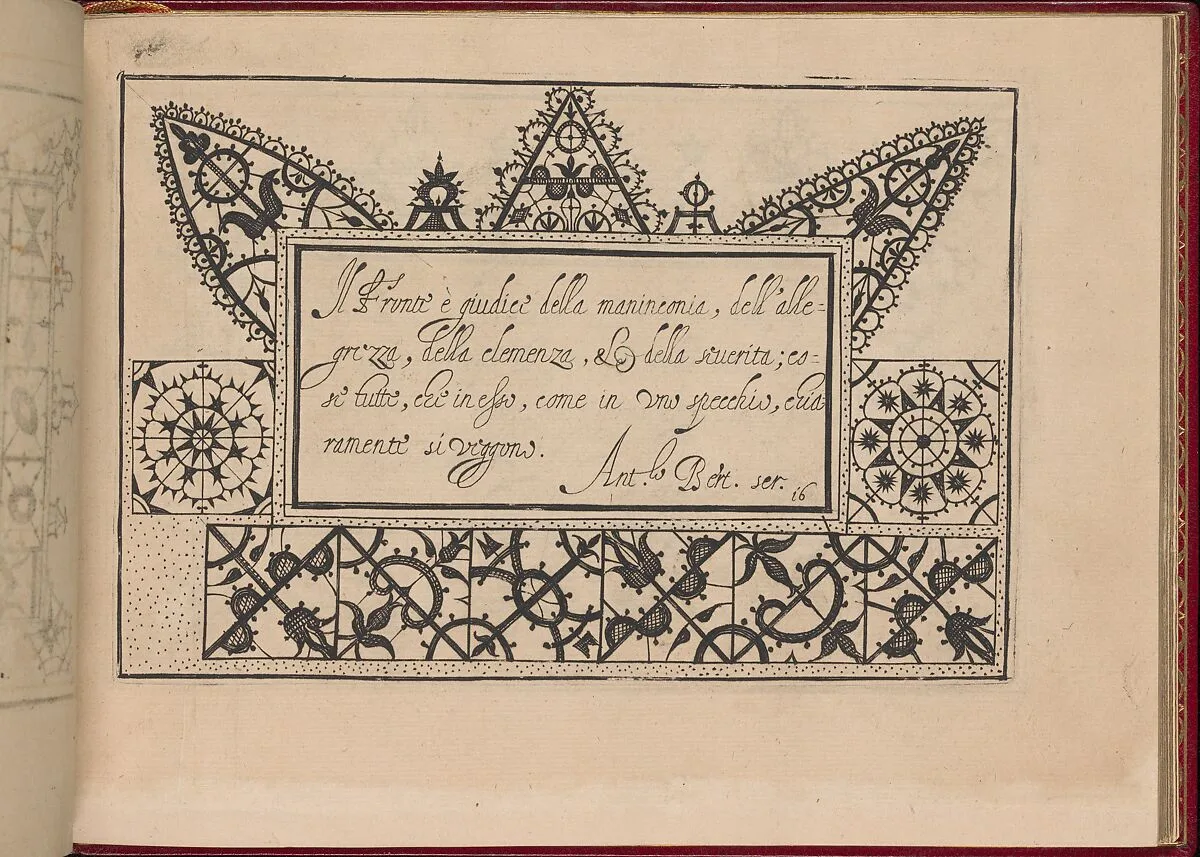 Il Fronte è giudice della maninconia, dell'alle-
grezza, della clemenza, & della severita; co-
se tutte, che in esso, come in uno specchio, chia
ramente si veggono.
Ant.º Bert. scr. 16